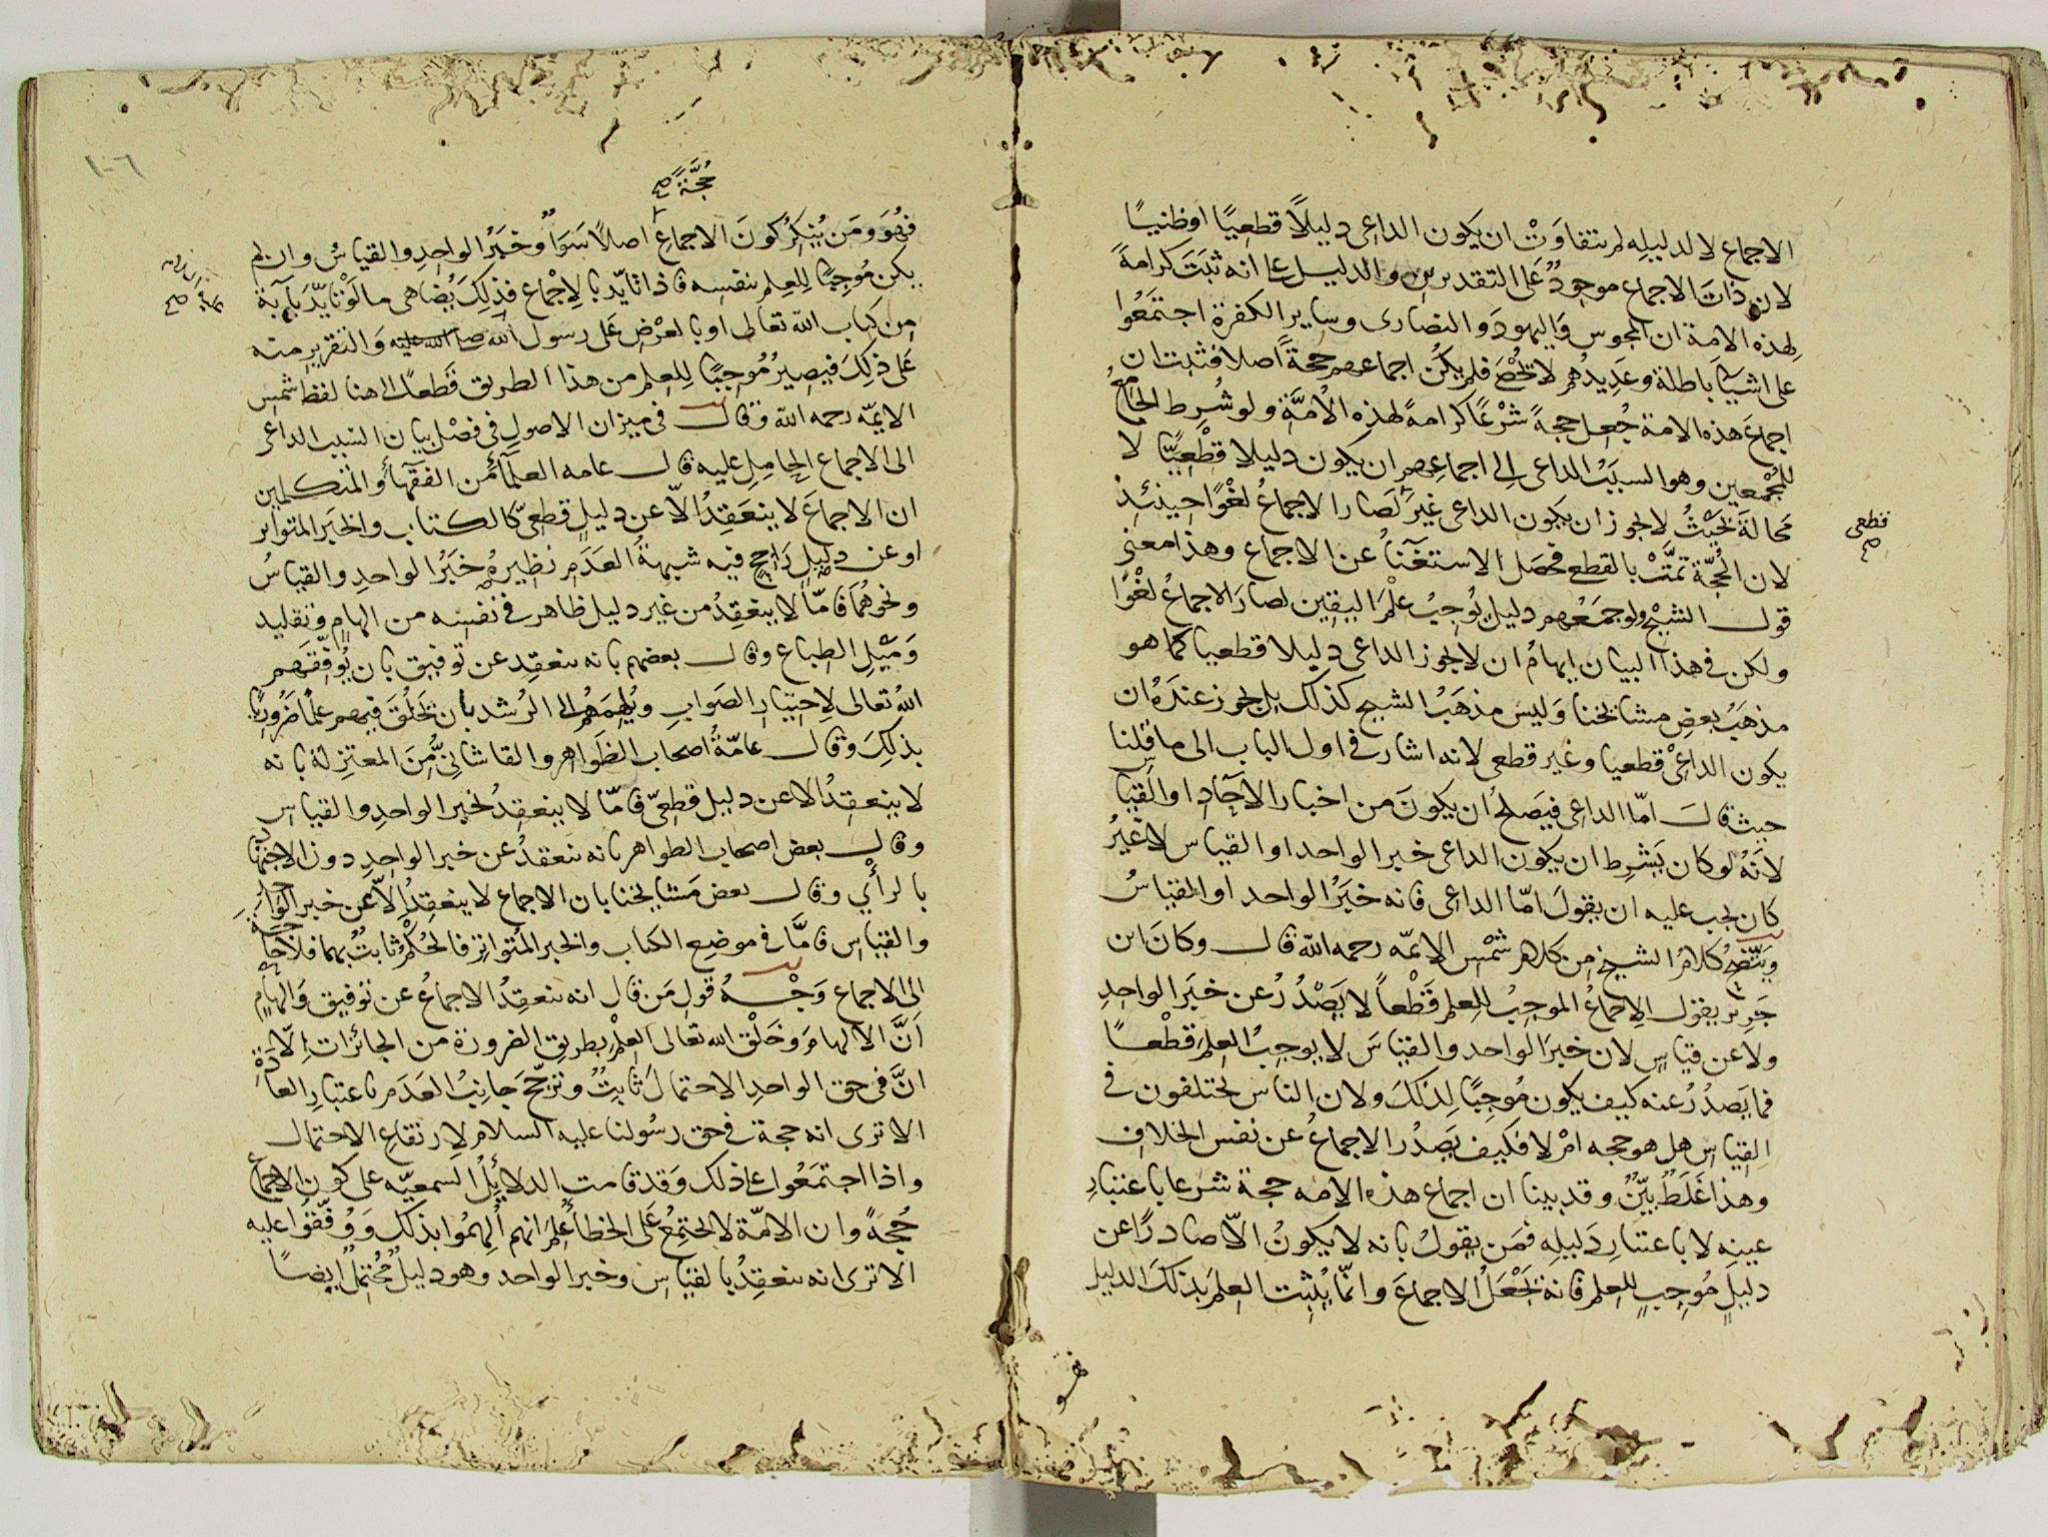 الاجماع لا لدليله لم يتفاوت ان يكون الداعى دليلًا قطعيًا او ظنيًا
لان ذات الاجماع موجودٌ على التقديرين والدليل على انه ثبت كرامةً
لهذه الامة ان المجوس واليهود والنصارى وساير الكفرة اجتمعوا
على اشيآء باطلة وعديدهم لا تحصى فلم يكن اجماعهم حجةً اصلا فثبت ان
اجماع هذه الامة جُعل حجةً شرعًا كرامةً لهذه الاُمَّة ولو شُرط الجامعُ
للمجمعين وهو السبب الداعى الى اجماعهم ان يكون دليلا قطعيًّا لا
محالة بحيث لا يجوز ان يكون الداعى غير لصار الاجماعُ لغوًا حينئذ
قطعى صح
لان الحُجّة تمَّتْ بالقطع فحصل الاستغنآءُ عن الاجماع وهذا معنى
قول الشيخ ولو جمعهم دليل يُوجبُ علم اليقين لصار الاجماعُ لغوًا
ولكن فى هذا البيان ايهام ان لا يجوز الداعى دليلا قطعيا كما هو
مذهبُ بعضِ مشايخنا وليس مذهَبُ الشيخ كذلك بل يجوز عندَهُ ان
يكون الداعىْ قطعيا وغير قطعى لانه اشار فى اول الباب الى ما قلنا
حيث قال امّا الداعى فيَصلحُ ان يكونَ من اخبار الآحاد او القياس
لانَّهُ لو كان يَشرط ان يكون الداعى خبر الواحد او القياس لا غيرُ
كان يجب عليه ان يقولَ امّا الداعى فانه خبَرُ الواحد او القياسُ
ويتضح كلامُ الشيخ من كلام شمْس الايمّه رحمه الله قال وكان ابن
جرير يقول الاجماعُ الموجبُ للعلم قَطْعاً لا يَصْدُرُ عن خبَر الواحدِ
ولا عن قياسٍ لان خبرَ الواحد والقياسَ لا يوجبُ العلمَ قطْعًا
فما يَصدُرُ عنه كيف يكون مُوجبًا لذلكَ ولان الناس يختلفون فى
القياس هل هو حجه امْ لا فكيف يَصدُر الاجماعُ عن نفس الخلاف
وهذا غَلَطٌ بيّنٌ وقد بينا ان اجماع هذه الامه حجة شرعا باعتبارِ
عينِه لا باعتبارِ دَليلِه فمَن يقولُ بانه لا يكونُ الاّ صادرًا عن
دليلٍ مُوجبٍ للعلم فانه يَجْعَلُ الاجماعَ وانّما يُثبت العلمَ بذلكَ الدليل
فهو
١٠٦
حُجَّةً صح
فهُوَ ومَن يُنكرُ كونَ الاجماع اصلاً سَوَاءٌ وخبَرُ الواحدِ والقياسُ وان لم
يكن مُوجبًا للعلم بنفسه فاذا تأيّد بالاجماع فذلكَ يُضاهى ما لو تأيّدَ بآيةٍ
من كتاب الله تعالى او بالعرْض على رسول الله صلى الله عليه والتقرير منه
على ذلكَ فيصيرُ مُوجبًا للعلم من هذا الطريق قطعًا الى هنا لفظ شمْس
الايمّه رحمه الله وقال فى ميزان الاصول فى فصْل بيان السَبب الداعى
الى الاجماع الحامِل عليه قال عامه العلمآء من الفقهآء والمتكلمين
ان الاجماعَ لا ينعَقِدُ الاّ عن دليلٍ قطعىّ كالكتاب والخبَر المتواتر
او عن دليلٍ راجح فيه شبهةُ العَدَم نظيرهُ خبَرُ الواحدِ والقياسُ
ونحوهُما فامّا لا ينعَقِدُ من غير دليل ظاهر فى نفسه من الهامٍ وتقليد
ومَيْلِ الطباع وقال بعضهم بانه ينعقد عن توفيق بان يُوفّقهم
اللهُ تعالى لاختيار الصَوابِ ويُلهِمَهُم الى الرُشد بان يَخلُقَ فيهم علمًا ضَرُوريًا
بذلكَ وقال عامّةُ اصحاب الظَواهر والقاشانىُّ من المعتزلة بانه
لا ينعقدُ الا عن دليل قطعىّ فامّا لا ينعقدُ بخبر الواحدِ والقياس
وقال بعض اصحاب الظواهر بانه ينعقدُ عن خبر الواحد دون الاجتهاد
بالرأي وقال بعض مَشايخنا بان الاجماع لا ينعقدُ الاّ عن خبر الواحد
والقياس فامَّا فى موضع الكتاب والخبر المُتواتر فالحُكمُ ثابتٌ بهما فلا حاجة
الى الاجماع وَجْهُ قول مَن قال انه ينعقدُ الاجماعُ عن توفيق والهامٍ
انَّ الالهامَ وخلْق الله تعالى العلمَ بطريق الضرورة من الجائزات الّا
انَّ فى حق الواحدِ الاحتمالَ ثابتٌ وترجّحَ جانِبُ العَدَم باعتبار العادَةِ
الا ترى انه حجة فى حق رسُولنا عليه السلام لارتفاع الاحتمال
واذا اجتمَعُوا على ذلك وقد قامت الدلايلُ السمعيّه على كون الاجماع
حُجةً وان الامّة لا تجتمعُ على الخطأ عُلمَ انهم اُلهِمُوا بذلك ووُفّقوا عليه
الا ترى انه ينعقدُ بالقياس وخبر الواحد وهو دليلٌ مُحتملٌ ايضًا